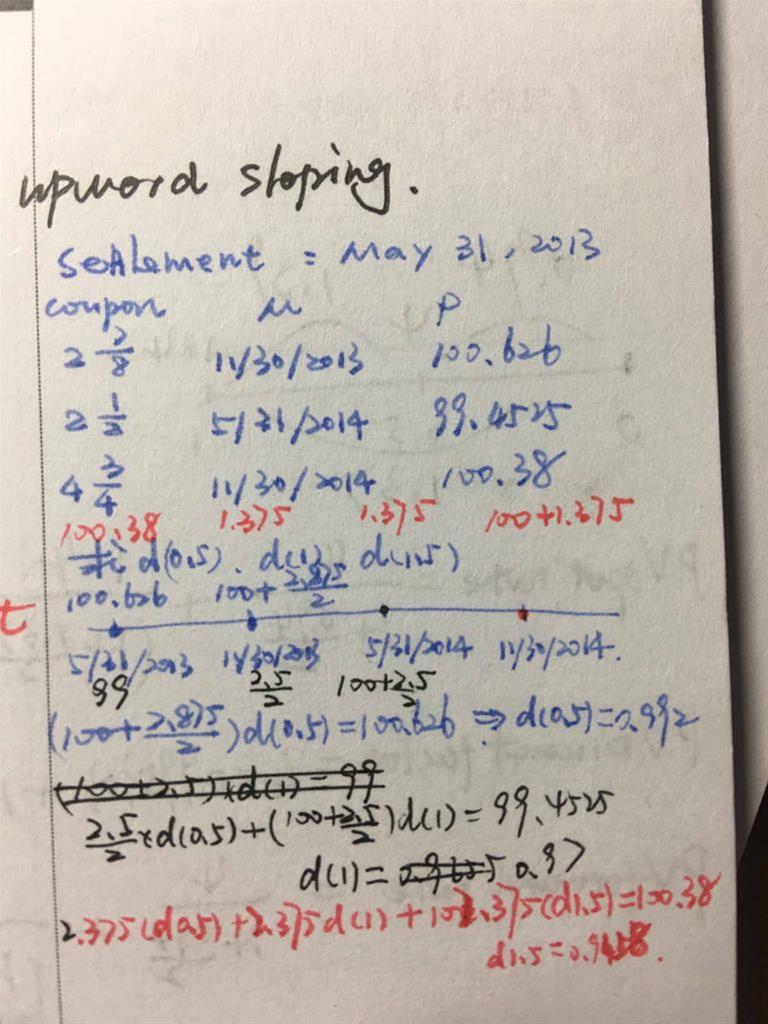 upword sloping.
Settlement = May 31, 2013
coupon M P
2 7/8 11/30/2013 100.626
2 1/2 5/31/2014 99.4525
4 3/4 11/30/2014 100.38
100.38 1.375 1.375 100+1.375
求 d(0.5). d(1) d(1.5)
100.626 100+ 2.875/2
t
5/31/2013 11/30/2013 5/31/2014 11/30/2014.
99 2.5/2 100+2.5/2
(100+2.875/2)d(0.5)=100.626 ⇒ d(0.5)=0.992
(100+2.5)×d(1)=99
2.5/2×d(0.5)+(100+2.5/2)d(1)=99.4525
d(1)= 0.97
2.375(d0.5)+2.375d(1)+102.375(d1.5)=100.38